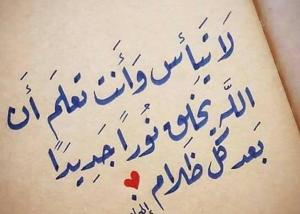 لَا تيَأس وَأَنت تعلَم أَن
اللَّه يَخلِق نُوراً جَدِيدًا
بَعد كُل ظلَام